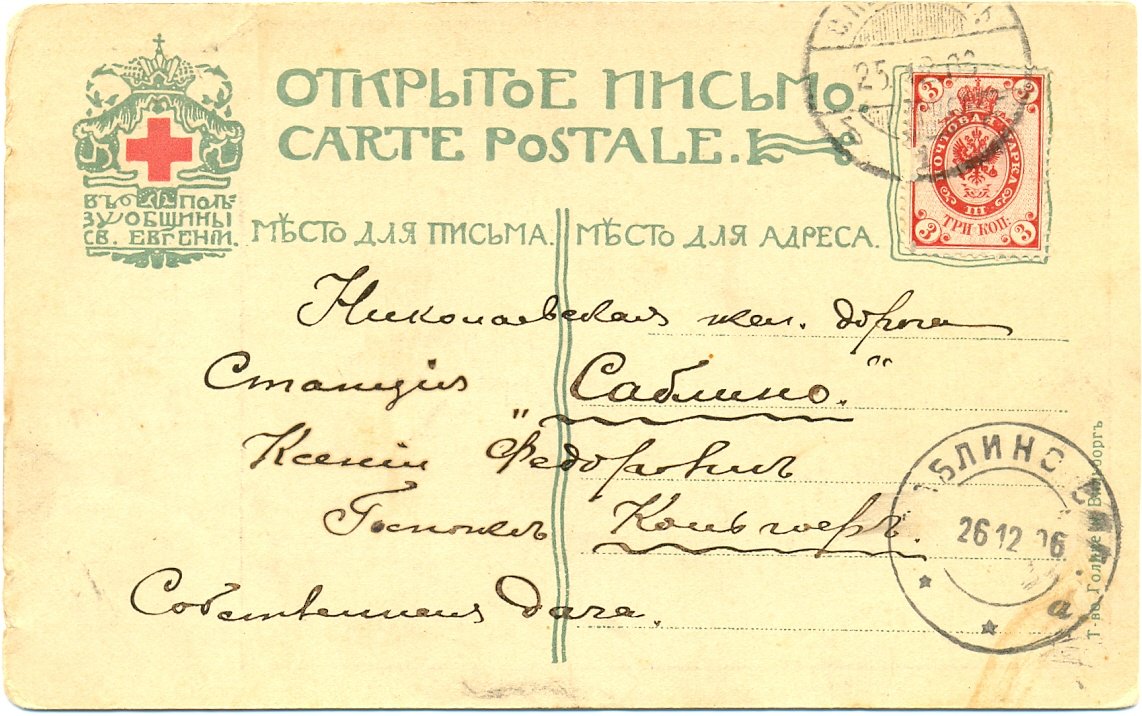 ОТКРЫТОЕ ПИСЬМО.
CARTE POSTALE.
ВЪ ПОЛЬ-
ЗУ ОБЩИНЫ
СВ. ЕВГЕНІИ.
МѢСТО ДЛЯ ПИСЬМА.
МѢСТО ДЛЯ АДРЕСА.
3 3
ПОЧТОВАЯ МАРКА
III
ТРИ КОП.
3 3
Николаевская жел. дорога
Станция „Саблино.“
Ксеніи Федоровнѣ
Госпожѣ
Собственная дача.
26 12 06
а
Т-во Голике и Вильборгъ